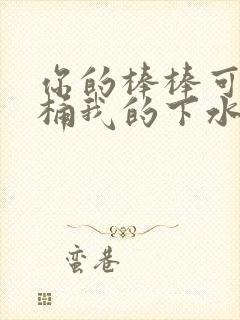 你的棒棒可
桶我的下水
蛮巷